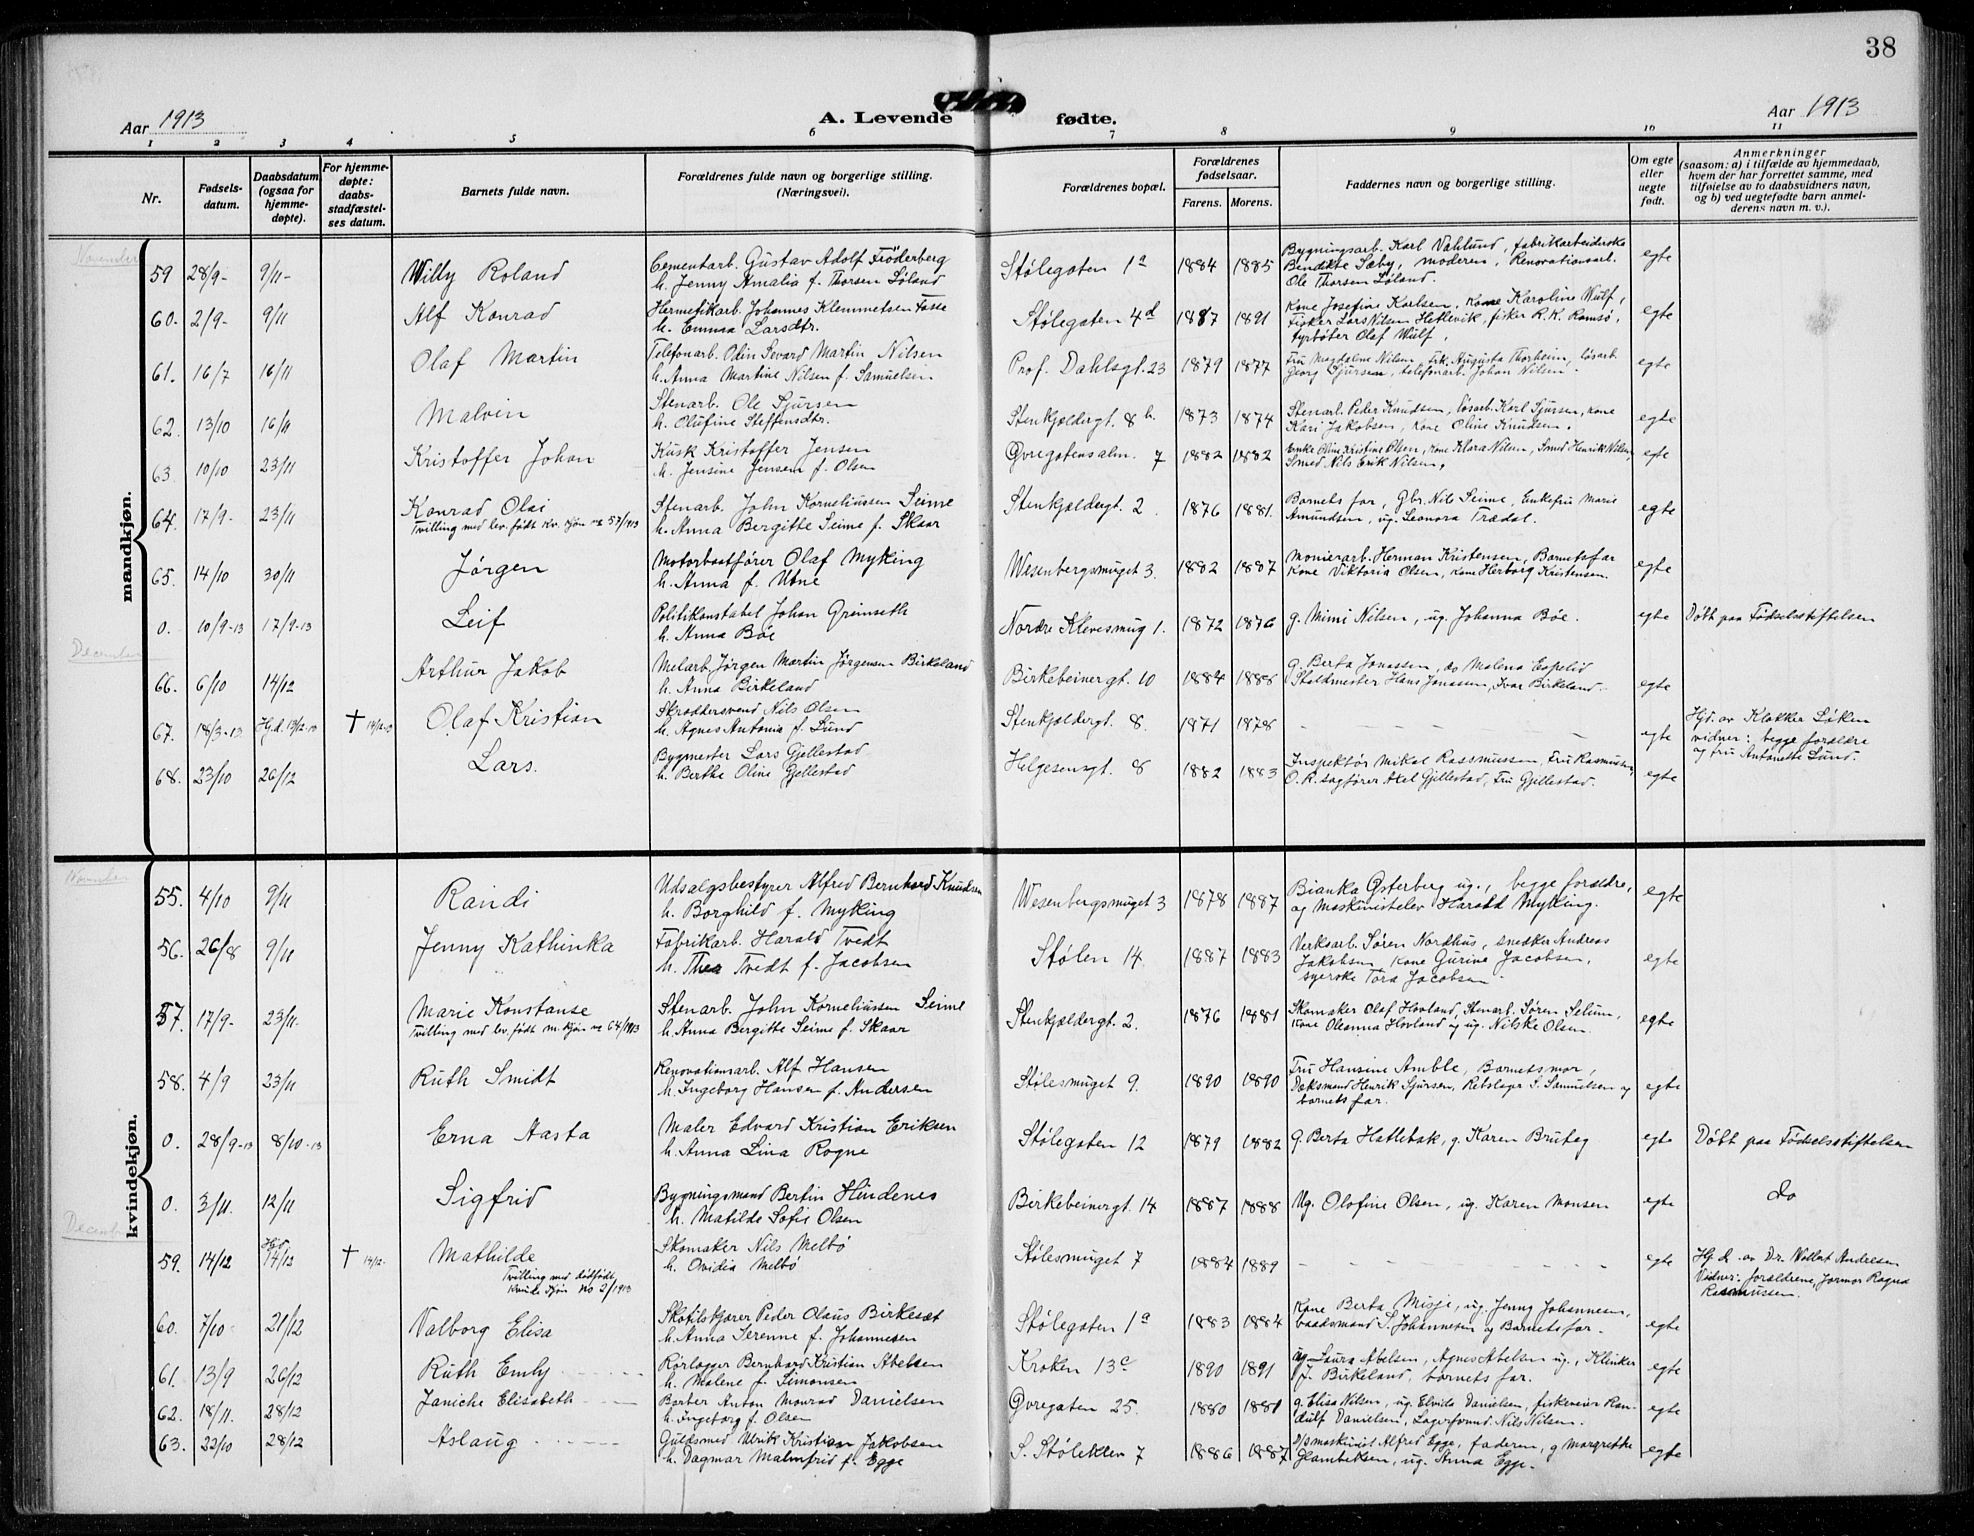 38
Aar 1913
A. Levende fødte.
Aar 1913
1 2 3 4 5 6 7 8 9 10 11
Nr.
Fødsels-
datum.
Daabsdatum
(ogsaa for
hjemme-
døpte).
For hjemme-
døpte:
daabs-
stadfæstel-
ses datum.
Barnets fulde navn.
Forældrenes fulde navn og borgerlige stilling.
(Næringsvei).
Forældrenes bopæl.
Forældrenes
fødselsaar.
Farens. Morens.
Faddernes navn og borgerlige stilling.
Om egte
eller
uegte
født.
Anmerkninger
(saasom: a) i tilfælde av hjemmedaab,
hvem der har forrettet samme, med
tilføielse av to daabsvidners navn,
og b) ved uegtefødte barn anmel-
derens navn m. v.).
mandkjøn.
November
59 28/9- 9/11- Willy Roland
Cementarb. Gustav Adolf Fröderberg
h. Jenny Amalia f. Thorsen Søland
Stølegaten 1a 1884 1885
Bygningsarb. Karl Vahlund, fabrikarbeiderske
Bendikte Sæby, moderen, Renovationsarb.
Ole Thorsen Søland.
egte
60. 2/9- 9/11 Alf Konrad
Hermetikarb. Johannes Klemmetsen Fosse
h. Emma Larsdtr.
Stølegaten 4d 1887 1891
Kone Josefine Karlsen, Kone Karoline Wulf,
Fisker Lars Nilsen Hetlevik, fisker R. K. Ramsø,
fyrbøter Olaf Wulf.
egte
61. 16/7 16/11 Olaf Martin
Telefonarb. Odin Sevard Martin Nilsen
h. Anna Martine Nilsen f. Samuelsen
Prof. Dahlsgt. 23 1879 1877
Fru Magdalene Nilsen, frk. Augusta Thorheim, løsarb.
Georg Sjursen, telefonarb. Johan Nilsen.
egte
62. 13/10 16/11 Malvin
Stenarb. Ole Sjursen
h. Olufine Steffensdtr.
Stenkjeldergt. 8 b. 1873 1874
Stenarb. Peder Knudsen, løsarb. Karl Sjursen, kone
Kari Jakobsen, kone Oline Knudsen.
egte
63 10/10 23/11 Kristoffer Johan
Kusk Kristoffer Jensen
h. Jensine Jensen f. Olsen
Øvregatensalm. 7 1882 1882
Enke Oline Kristine Olsen, Kone Klara Nilsen, Smed Henrik Nilsen
Smed Nils Erik Nilsen.
egte
64. 17/9- 23/11 Konrad Olai
Tvilling med lev. født kv. kjøn no 57/1913
Stenarb. John Korneliussen Seime
h. Anna Bergitte Seime f. Skaar
Stenkjeldergt. 2 1876 1881.
Barnets far, Gbr. Nils Seime, Enkefru Marie
Amundsen, ug. Leonora Trædal.
egte
65. 14/10 30/11 Jørgen
Motorbaatfører Olaf Myking
h. Anna f. Utne
Wesenbergsmuget 3. 1882 1887
Monierarb. Herman Kristensen, Barnets far
Kone Viktoria Olsen, Kone Herborg Kristensen.
egte
0. 10/9-13 17/9-13 Leif
Politikonstabel Johan Grimseth
h. Anna Bøe
Nordre Klevesmug 1. 1872 1876
g. Mimi Nilsen, ug. Johanna Bøe.
egte
Døbt paa Fødselsstiftelsen
December
66. 6/10 14/12 Arthur Jakob
Melarb. Jørgen Martin Jørgensen Birkeland
h. Anna Birkeland
Birkebeinergt. 10 1884 1888
g. Berta Jonassen, do Malena Espelid
Staldmester Hans Jonassen, Ivar Birkeland.
egte
67. 18/3-13 Hj.d. 13/12-13 † 14/12-13 Olaf Kristian
Skræddersvend Nils Olsen
h. Agnes Antonia f. Lund
Stenkjeldergt. 8. 1871 1878
egte
Hjd. av Klokker Løken
vidner: begge forældre
og fru Antonette Lund.
68. 23/10 26/12 Lars.
Bygmester Lars Gjellestad
h. Berthe Oline Gjellestad
Helgesensgt. 8 1882 1883
Inspektør Mikal Rasmussen, Fru Rasmussen,
O. R. sagfører Axel Gjellestad, Fru Gjellestad.
egte
kvindekjøn.
November
55. 4/10 9/11 Randi
Udsalgsbestyrer Alfred Bernhard Knudsen
h. Borghild f. Myking
Wesenbergsmuget 3 1878 1887
Bianka Østerberg ug., begge forældre,
og Maskinistelev Harald Myking.
egte
56. 26/8 9/11 Jenny Kathinka
Fabrikarb. Harald Tvedt
h. Thea Tvedt f. Jacobsen
Stølen 14. 1887 1883
Verksarb. Søren Nordhus, snedker Andreas
Jakobsen Kone Gurine Jacobsen,
syerske Tora Jacobsen.
egte
57. 17/9- 23/11. Marie Konstanse
Tvilling med lev. født m. kjøn no 64/1913
Stenarb. John Korneliussen Seime
h. Anna Bergitte Seime f. Skaar
Stenkjeldergt. 2. 1876 1881
Skomaker Olaf Hovland, Stenarb. Søren Selum,
Kone Oleanna Hovland og ug. Nilske Olsen.
egte
58. 4/9 23/11 Ruth Smidt
Renovationsarb. Alf Hansen
h. Ingeborg Hansen f. Andersen
Stølesmuget 9. 1890 1890
Fru Hansine Amble, Barnets mor,
Dæksmand Henrik Sjursen, Rebslager S. Samuelsen og
barnets far.
egte
0. 28/9-13 8/10-13 Erna Aasta
Maler Edvard Kristian Eriksen
h. Anna Lina Rogne
Stølegaten 12 1879 1882
g. Berta Hatlebak, g. Karen Bruteg
egte
Døbt paa Fødselsstiftelsen
0. 3/11. 12/11 Sigfrid
Bygningsmand Bertin Hindenes
h. Matilde Sofie Olsen
Birkebeinergt. 14 1887 1888
Ug. Olofine Olsen, ug. Karen Monsen
egte
do
Decemb.
59. 14/12 Hjd. 14/12 † 14/12- Mathilde
Tvilling med dødfødt
kvinde kjøn no 2/1913
Skomaker Nils Melbø
h. Ovidia Melbø
Stølesmuget 7 1884 1889
egte
Hj.d. av Dr. Wollert Andresen
Vidner: forældrene, Jormor Ragna
Rasmussen.
60. 7/10 21/12 Valborg Elisa
Skotilskjærer Peder Olaus Birkesæt
h. Anna Serenne f. Johannesen
Stølegaten 1a 1883 1884
Kone Berta Misje, ug. Jenny Johannesen,
baadsmand S. Johannesen og Barnets far.
egte
61. 13/9 26/12 Ruth Emly
Rørlægger Bernhard Kristian Abelsen
h. Malene f. Simonsen
Kroken 13c 1890 1891
ug. Laura Abelsen, Agnes Abelsen ug., Klinker
J. Birkeland, barnets far.
egte
62. 18/11. 28/12 Janiche Elisabeth
Barber Anton Monrad Danielsen
h. Ingeborg f. Olsen
Øvregaten 25. 1880 1881
g. Elisa Nilsen, ug. Elvida Danielsen, fiskeveier Ran-
dulf Danielsen, Lagerformd. Nils Nilsen.
egte
63. 22/10 28/12 Aslaug
Guldsmed Ulrik Kristian Jakobsen
h. Dagmar Malmfrid f. Egge
S. Støleklev 7 1886 1887
D/s maskinist Alfred Egge, faderen, g Margrethe
Glambeksen, ug. Anna Egge.
egte